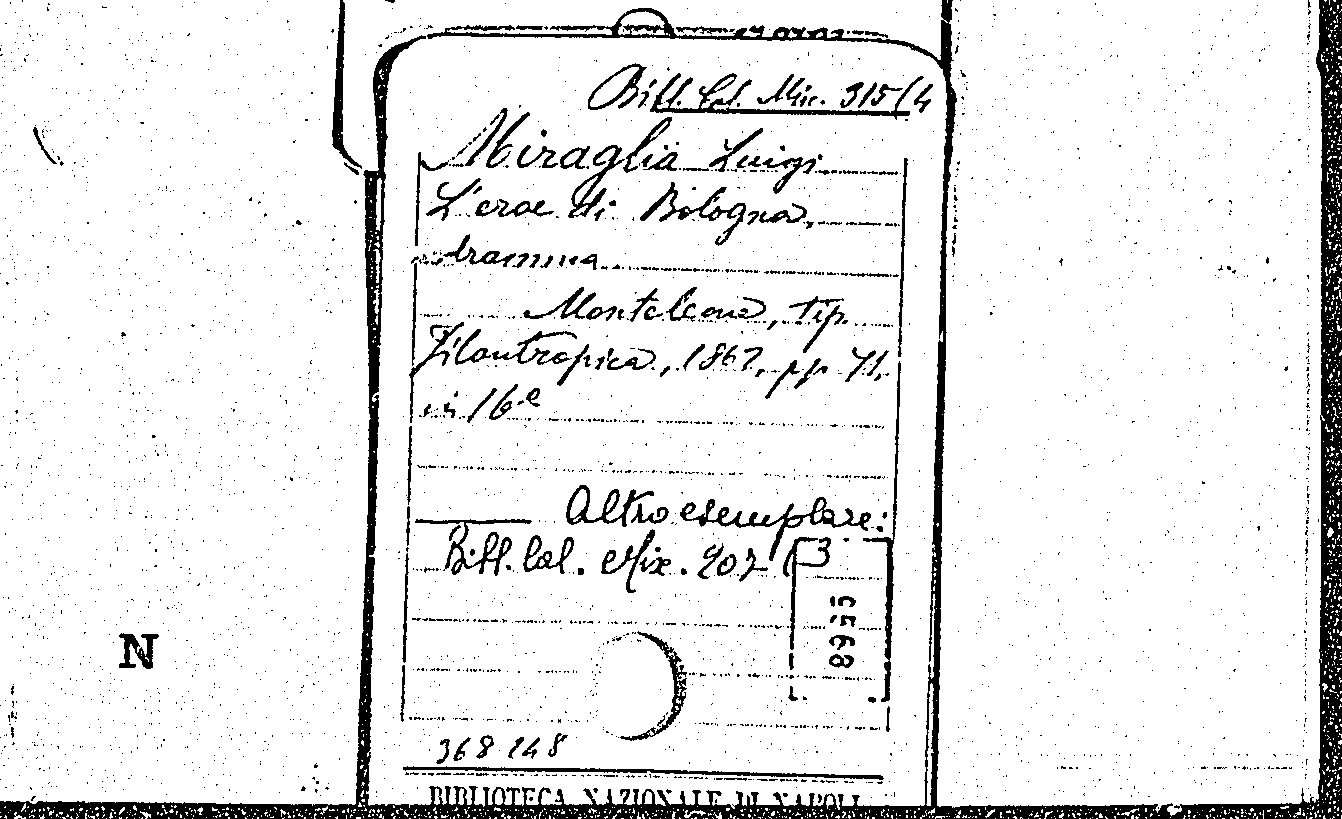 Bibl. Cal. Mix. 315(4
Miraglia Luigi
L'eroe di Bologna,
dramma
Monteleone, Tip.
Filantropica, 1867, pp 71.
in 16º
Altro esemplare:
Bibl. Cal. Mix. 202 (3
5598
N
368148
BIBLIOTECA NAZIONALE DI NAPOLI